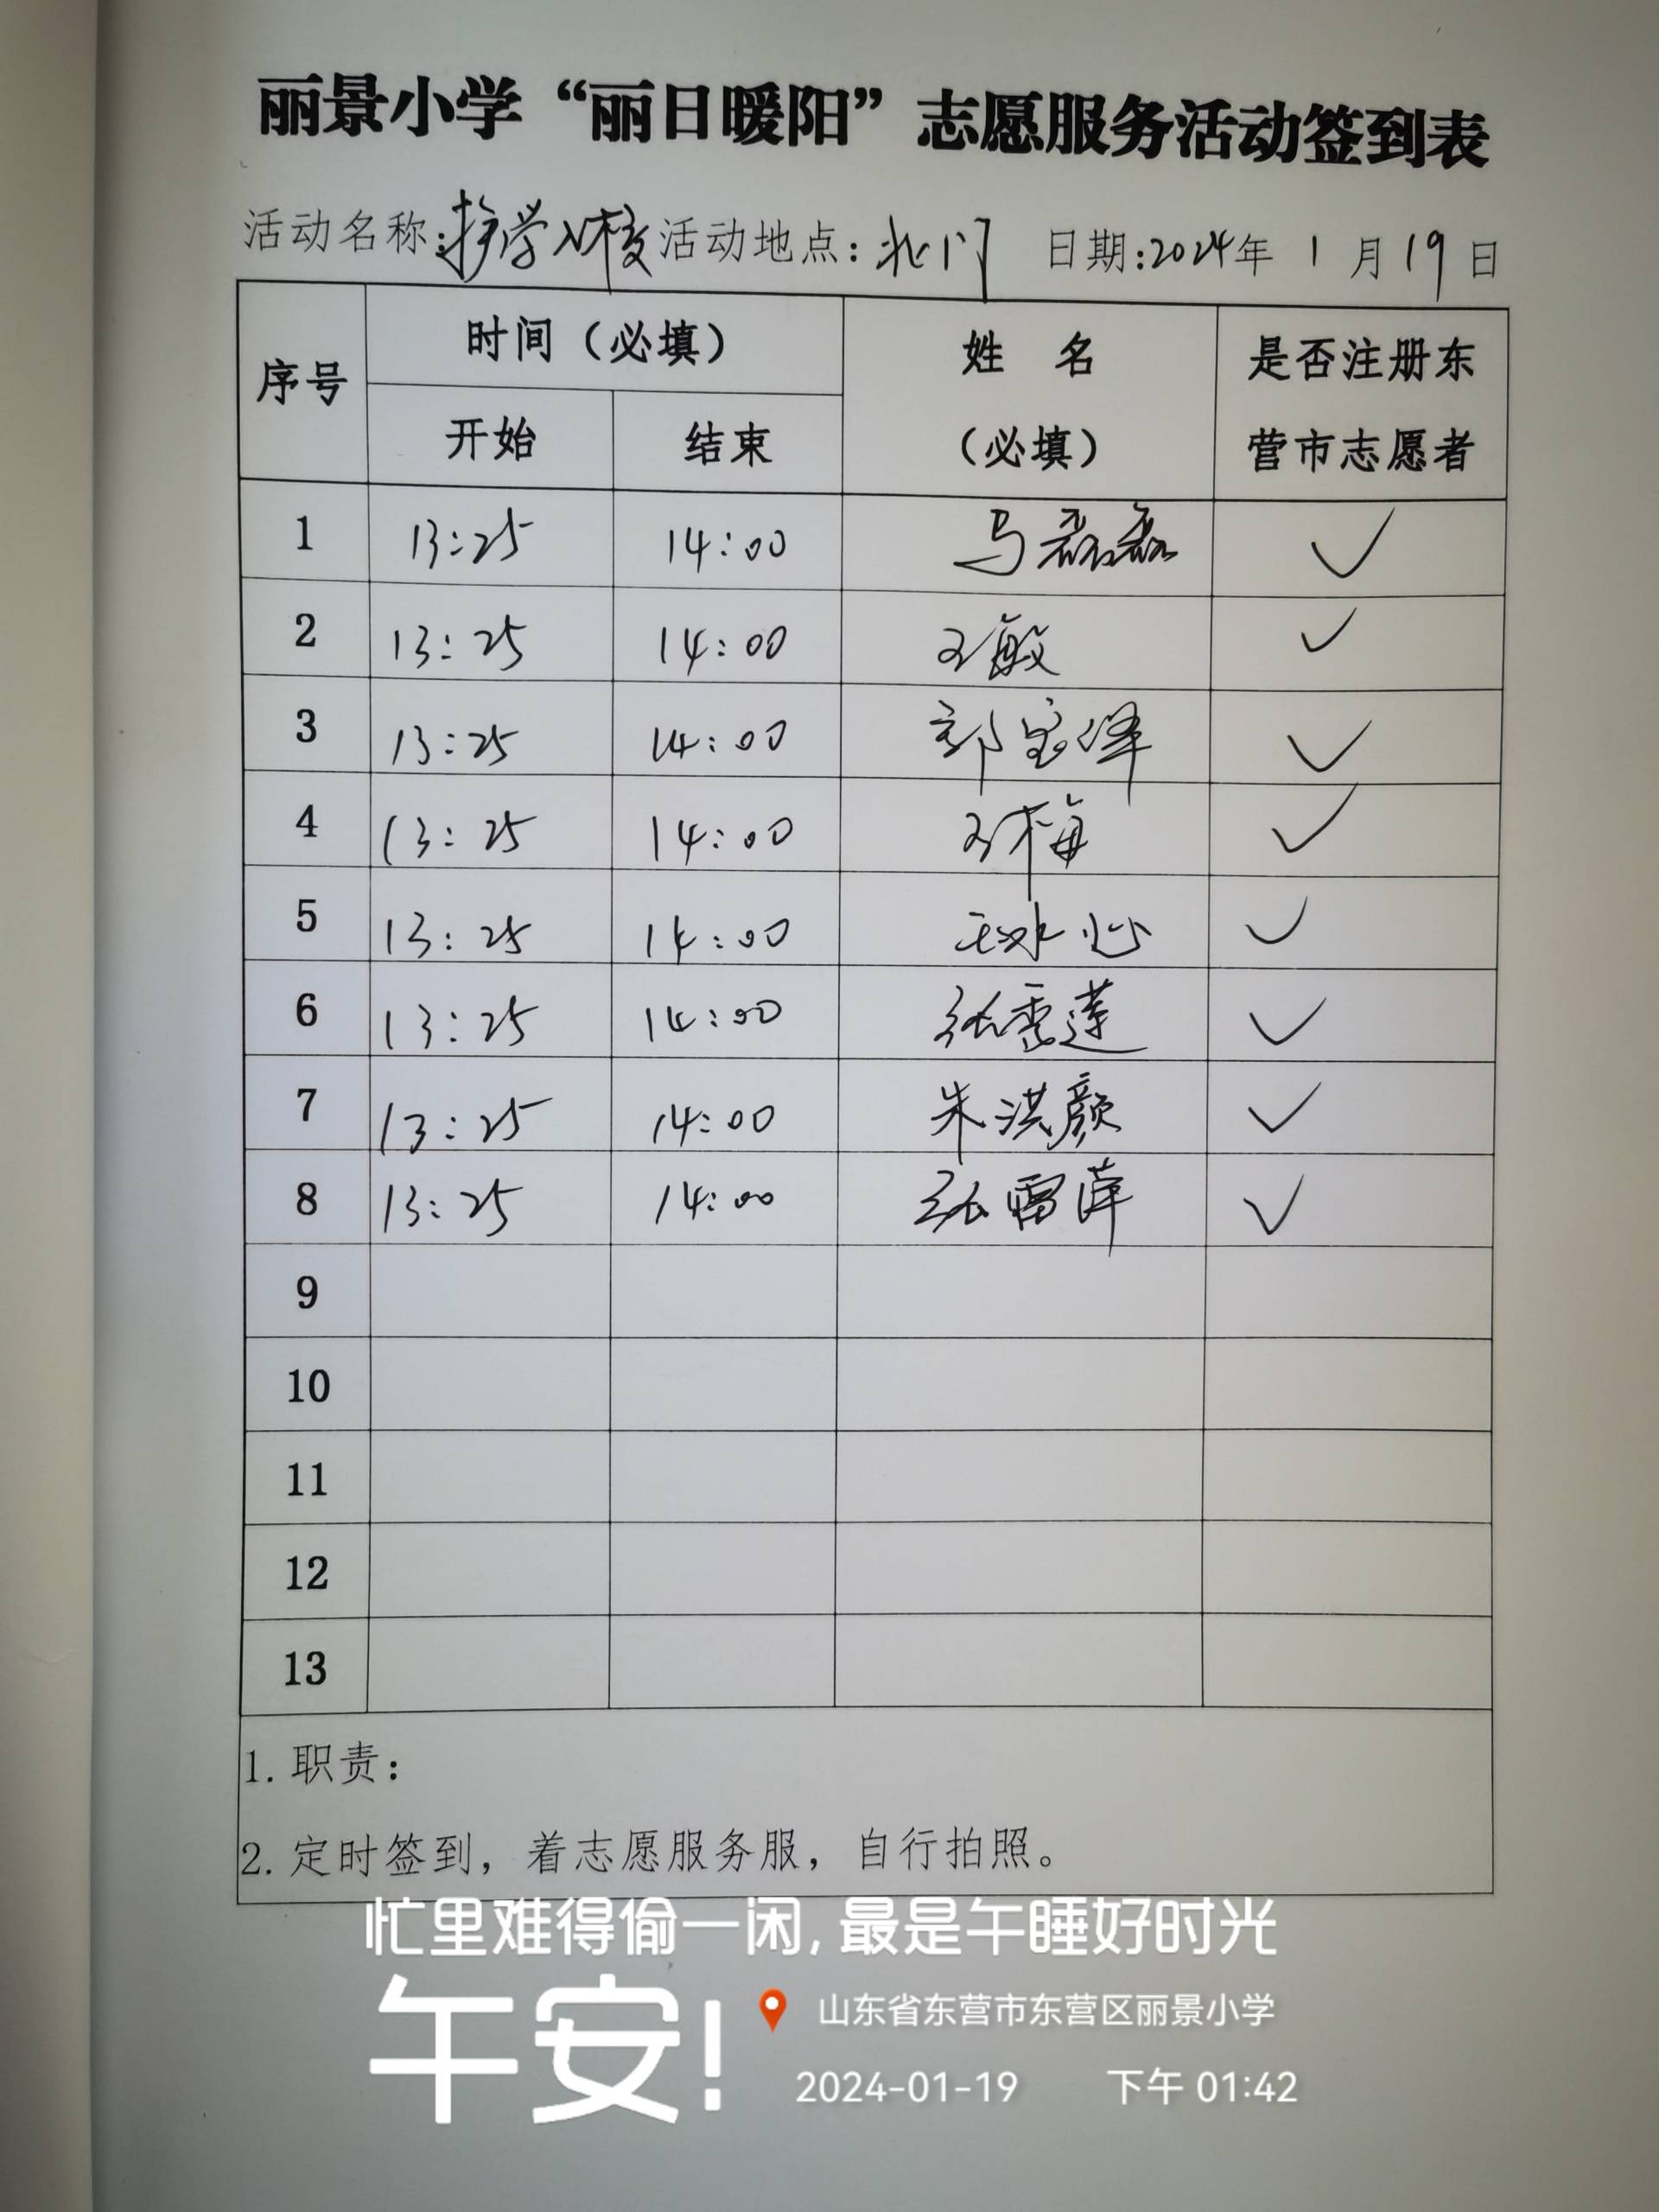 丽景小学“丽日暖阳”志愿服务活动签到表
活动名称:护学入校 活动地点：北门 日期:2024年 1 月 19 日
序号 时间（必填） 姓 名 是否注册东
开始 结束 （必填） 营市志愿者
1 13:25 14:00 马磊磊 ✓
2 13:25 14:00 王敏 ✓
3 13:25 14:00 郭宝泽 ✓
4 13:25 14:00 王梅 ✓
5 13:25 14:00 王冰心 ✓
6 13:25 14:00 张雪莲 ✓
7 13:25 14:00 朱洪颜 ✓
8 13:25 14:00 张雷萍 ✓
9
10
11
12
13
1. 职责：
2. 定时签到，着志愿服务服，自行拍照。
忙里难得偷一闲,最是午睡好时光
午安!
山东省东营市东营区丽景小学
2024-01-19 下午 01:42